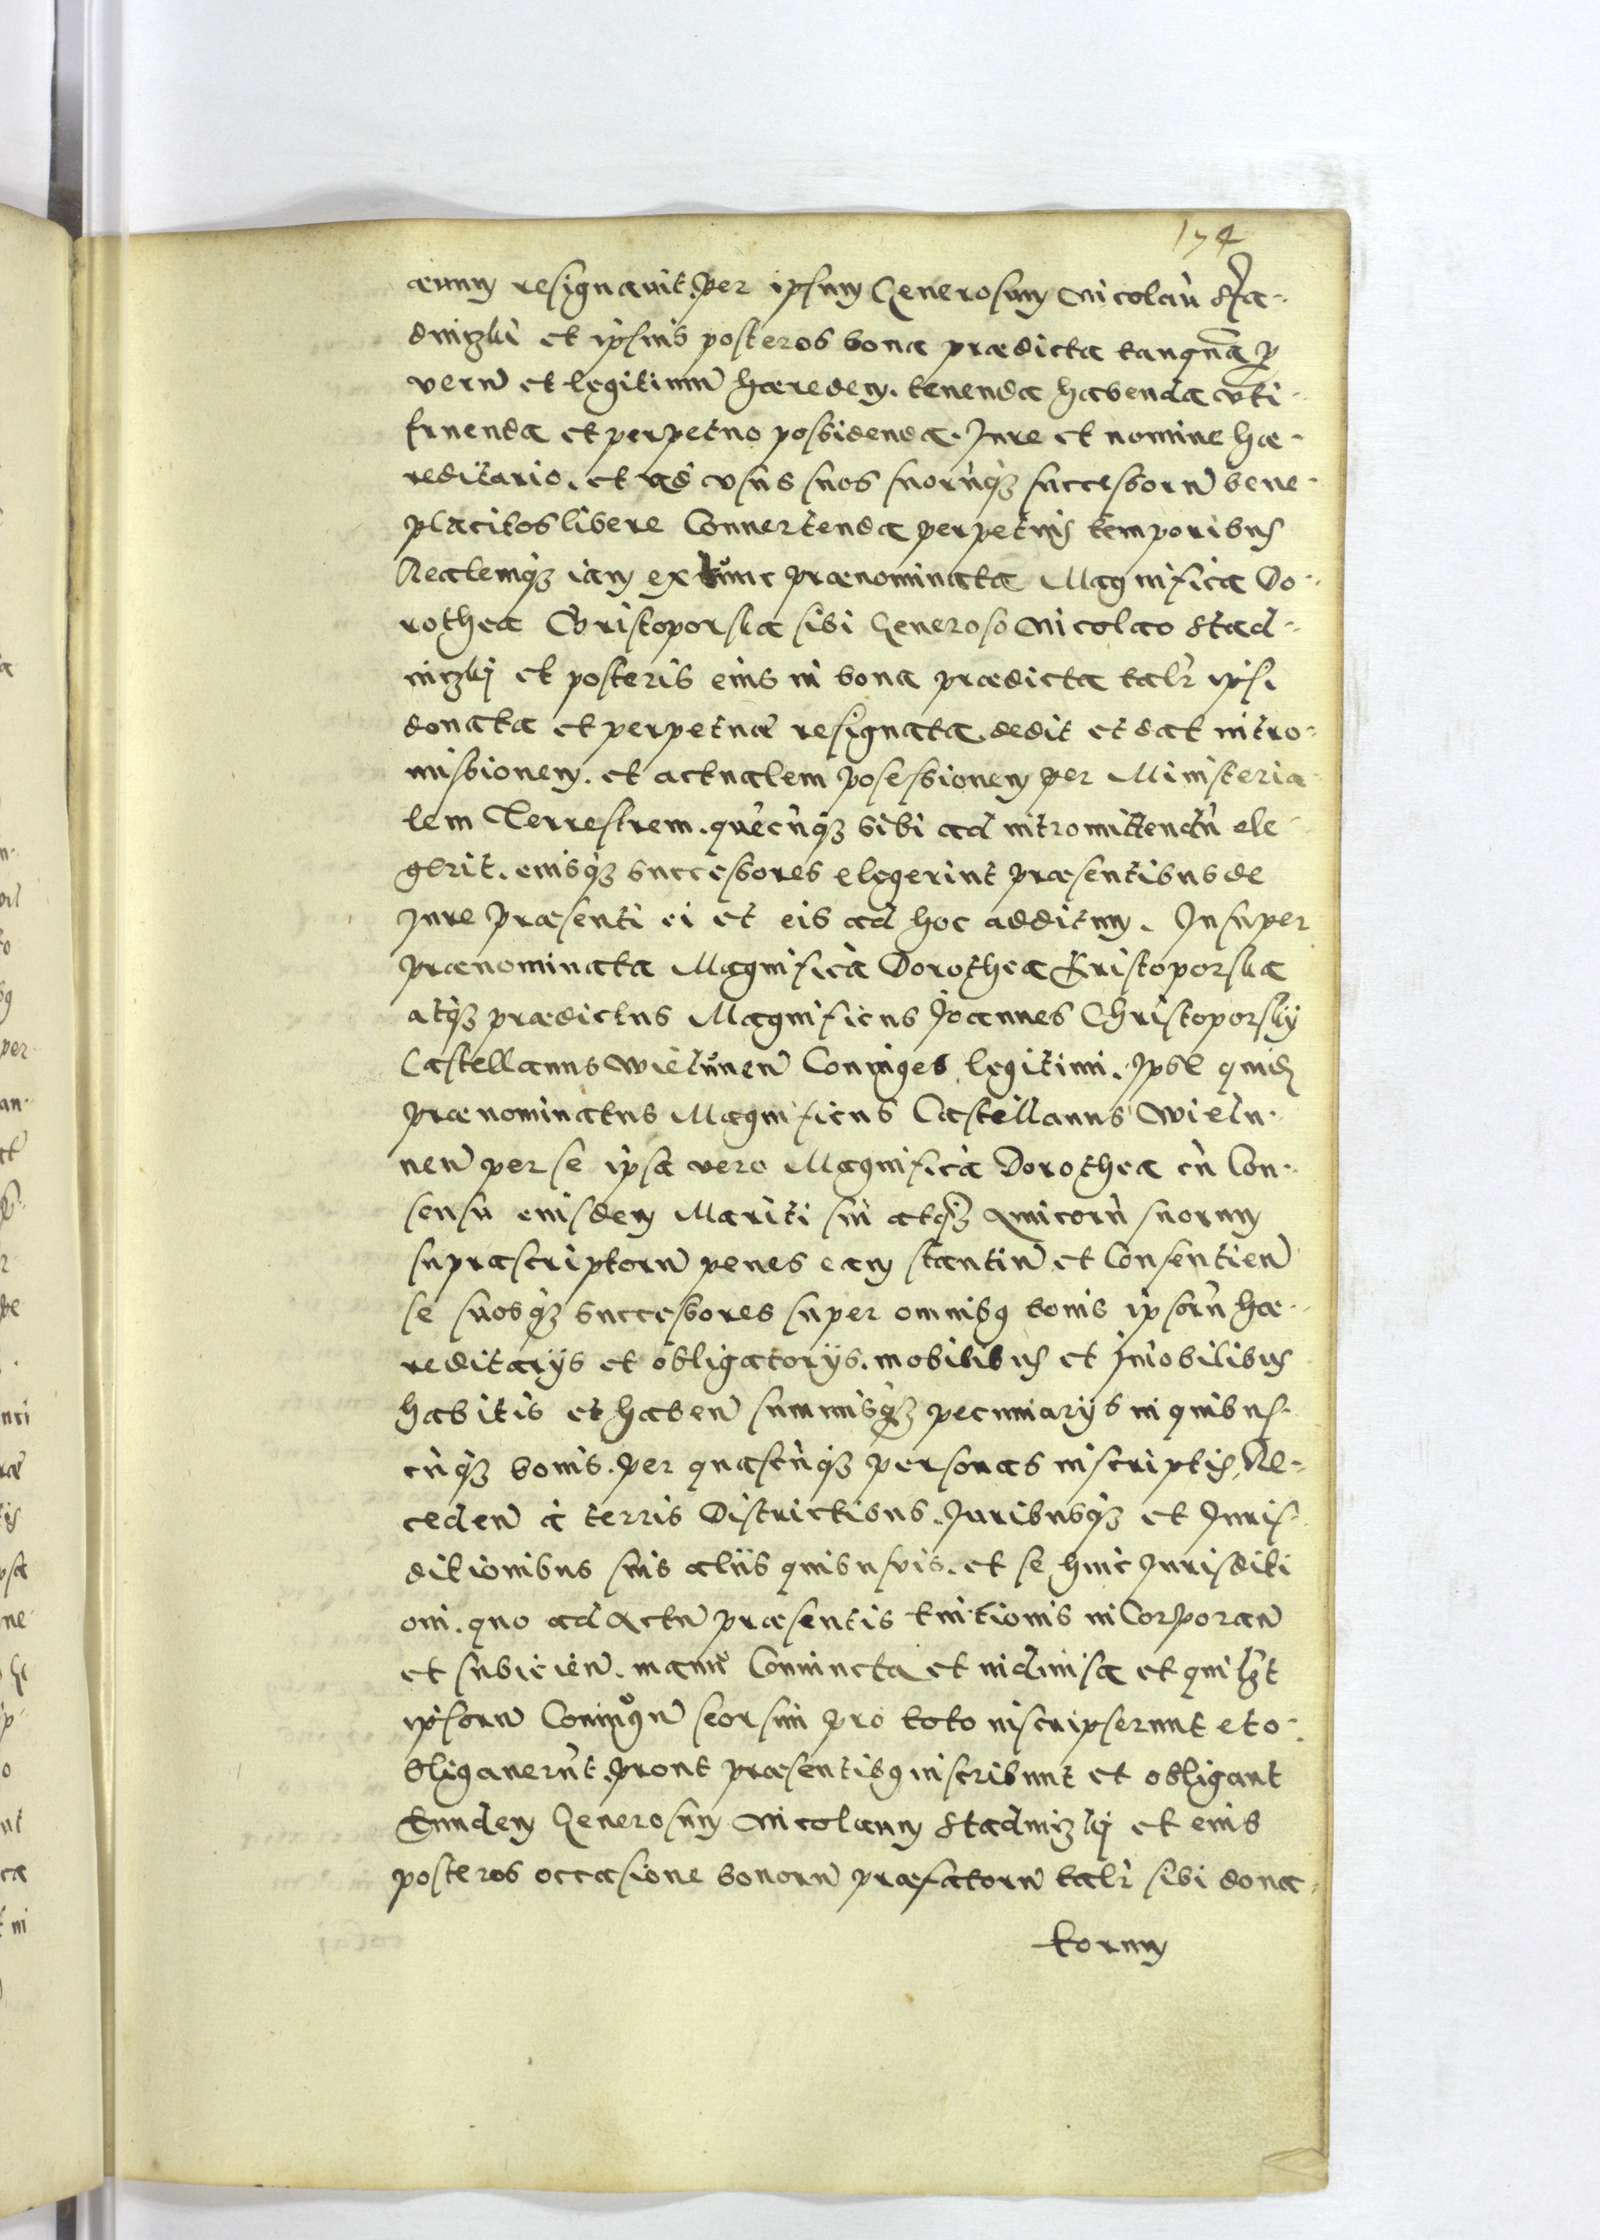 174
aeuum resignauit. per ipsum Generosum Nicolaū Sta-
dniczki et ipsius posteros bona praedicta tanquā p
verū et legitimū haeredem. tenenda habenda vti-
fruenda et perpetuo possidenda. Jure et nomine hae-
reditario. et ad vsus suos suorūq3 successorū bene-
placitos libere Conuertenda perpetuis temporibus
Realemq3 iam ex tunc praenominata Magnifica Do-
rothea Christoporska sibi Generoso Nicolao Stad-
niczkij et posteris eius in bona praedicta talr ipsi
donata et perpetuae resignata. dedit et dat intro-
missionem. et actualem posessionem per Ministeria-
lem Terrestrem. quēcūq3 sibi ad intromittendū ele-
gerit. eiusq3 successores elegerint praesentibus de
Jure praesenti ei et eis ad hoc additum. Insuper
praenominata Magnifica Dorothea Kristoporska
atq3 praedictus Magnificus Joannes Christoporskij
Castellanus Wielunen̄ Coniuges legitimi. Ipse quidem
praenominatus Magnificus Castellanus Wielu-
nen̄ per se ipsa vero Magnifica Dorothea cū Con-
sensu eiusdem Mariti sui atq3 Amicorū suorum
suprascriptorū penes eam stantiū et Consentien̄
se suosq3 successores super omnib9 bonis ipsorū hae-
reditarijs et obligatorijs. mobilibus et Jm̄obilibus
habitis et haben̄ summisq3 pecuniarijs in quibus-
cūq3 bonis. per quascūq3 personas inscriptis, Re-
ceden̄ à terris Districtibus. Juribusq3 et Juris-
ditionibus suis aliis quibusvis. et se huic Jurisditi
oni. quo ad Actū praesentis tuitionis inCorporan̄
et subicien̄. manu Coniuncta et indiuisa et quil3t
ipsorū Coniugū seorsim pro toto inscripserunt et o-
bligauerūt. prout praesentib9 inscribunt et obligant
Eundem Generosum Nicolaum Stadnizkj et eius
posteros occasione bonorū praefatorū talr sibi dona-
torum